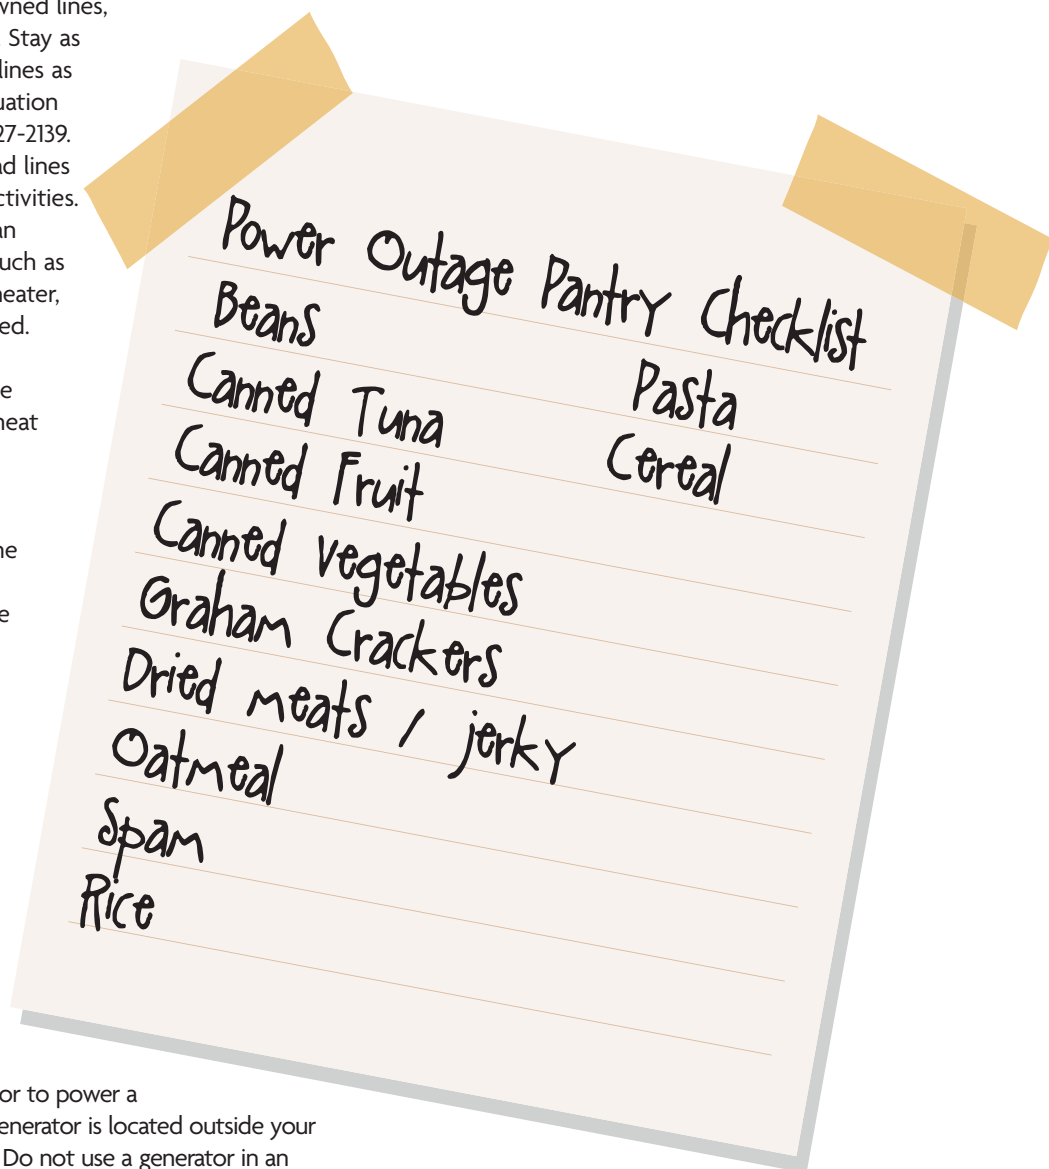 wned lines,
Stay as
lines as
uation
27-2139.
ad lines
ctivities.
an
uch as
heater,
ed.
e
heat
he
e
Power Outage Pantry Checklist
Beans
Canned Tuna
Canned Fruit
Canned vegetables
Graham Crackers
Dried meats / jerky
Oatmeal
Spam
Rice
Pasta
Cereal
or to power a
enerator is located outside your
Do not use a generator in an